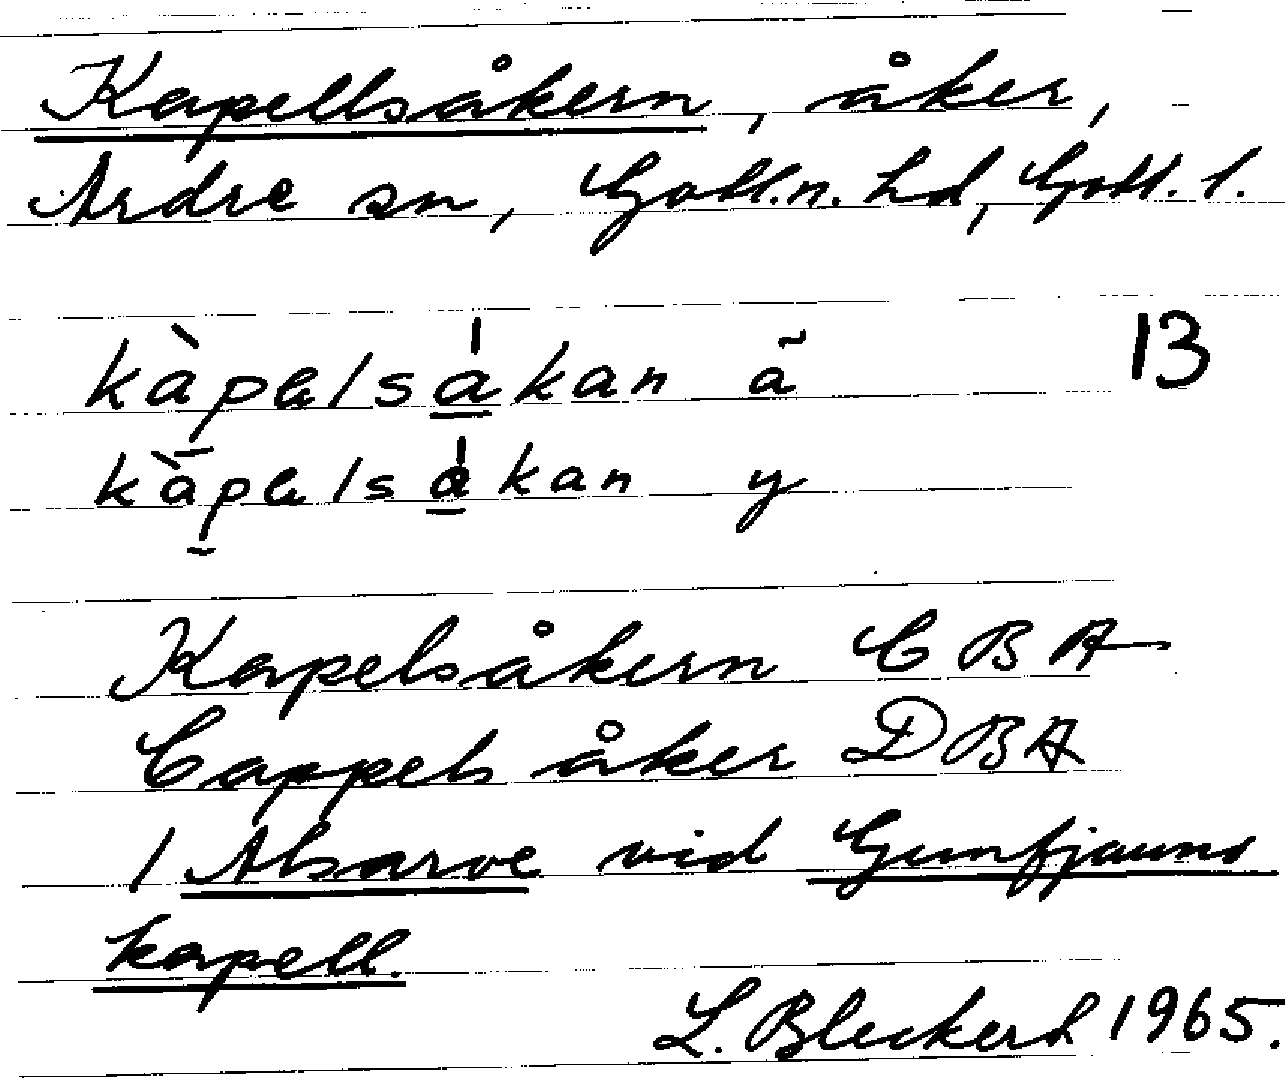 Kapellsåkern, åker,
Ardre sn, Gotl.n. hd, Gotl. l.
kàpalsákan ã
13
kàpalsákan y
Kapelsåkern CBA
Cappels åker DBA
I Alsarve vid Gunfjauns
kapell.
L. Bleckert 1965.